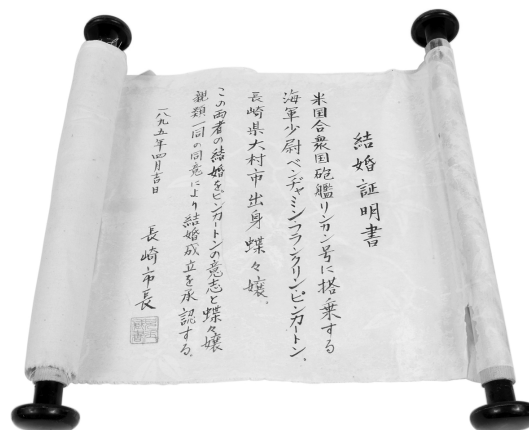 結婚証明書
米国合衆国砲艦リンカン号に搭乗する
海軍少尉ベンヂャミンフランクリン・ピンカートン、
長崎県大村市出身蝶々嬢、
この両者の結婚をピンカートンの意志と蝶々嬢
親類一同の同意により結婚成立を承認する。
一八九五年四月吉日
長崎市長